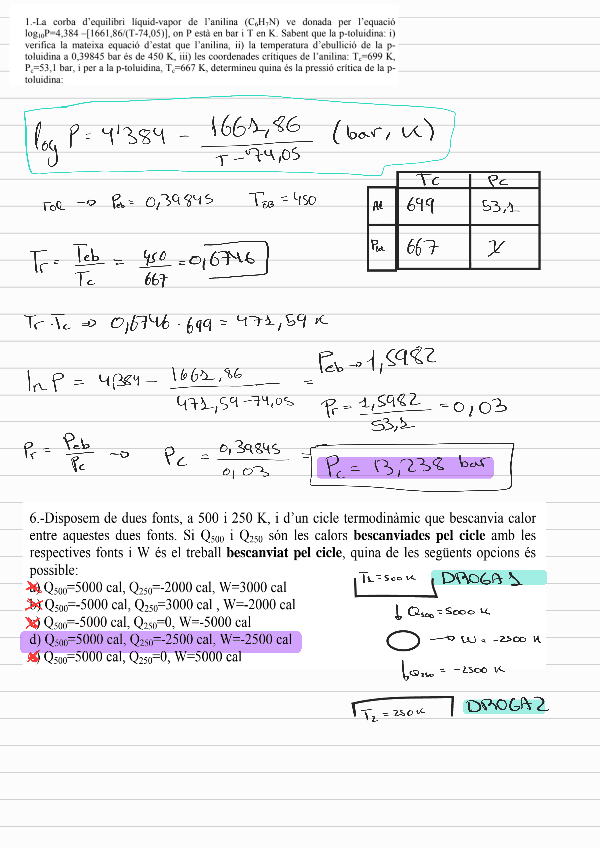 1.-La corba d'equilibri líquid-vapor de l'anilina (C₆H₇N) ve donada per l'equació
log₁₀P=4,384 –[1661,86/(T-74,05)], on P està en bar i T en K. Sabent que la p-toluidina: i)
verifica la mateixa equació d'estat que l'anilina, ii) la temperatura d'ebullició de la p-
toluidina a 0,39845 bar és de 450 K, iii) les coordenades crítiques de l'anilina: Tc=699 K,
Pc=53,1 bar, i per a la p-toluidina, Tc=667 K, determineu quina és la pressió crítica de la p-
toluidina:
log P = 4'384 - 1661,86 / T - 74,05 (bar, K)
Tc Pc
699 53,1
667 X
Peb = 0,39845 Teb = 450
Tr = Teb / Tc = 450 / 667 = 0,6746
Tr · Tc => 0,6746 · 699 = 471,59 K
ln P = 4,384 - 1661,86 / 471,59 - 74,05 = Peb → 1,5982
Pr = 1,5982 / 53,1 = 0,03
Pr = Peb / Pc → Pc = 0,39845 / 0,03 = Pc = 13,238 bar
6.-Disposem de dues fonts, a 500 i 250 K, i d'un cicle termodinàmic que bescanvia calor
entre aquestes dues fonts. Si Q₅₀₀ i Q₂₅₀ són les calors bescanviades pel cicle amb les
respectives fonts i W és el treball bescanviat pel cicle, quina de les següents opcions és
possible:
a) Q₅₀₀=5000 cal, Q₂₅₀=-2000 cal, W=3000 cal
b) Q₅₀₀=-5000 cal, Q₂₅₀=3000 cal , W=-2000 cal
c) Q₅₀₀=-5000 cal, Q₂₅₀=0, W=-5000 cal
d) Q₅₀₀=5000 cal, Q₂₅₀=-2500 cal, W=-2500 cal
e) Q₅₀₀=5000 cal, Q₂₅₀=0, W=5000 cal
T₁ = 500 K DROGA 1
↓ Q₅₀₀ = 5000 K
→ W = -2500 K
↓ Q₂₅₀ = -2500 K
T₂ = 250 K DROGA 2